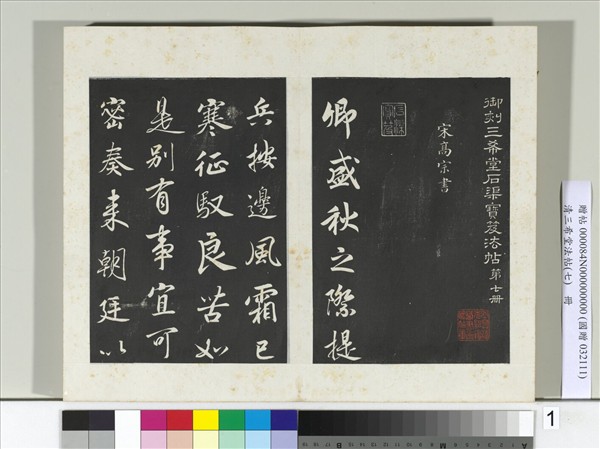 御刻三希堂石渠寶笈法帖第七冊
宋高宗書
卿盛秋之際提
兵按邊風霜已
寒征馭良苦如
是別有事宜可
密奏来朝廷以
贈帖 000084N000000000 (國贈 032111)
清三希堂法帖(七) 冊
1